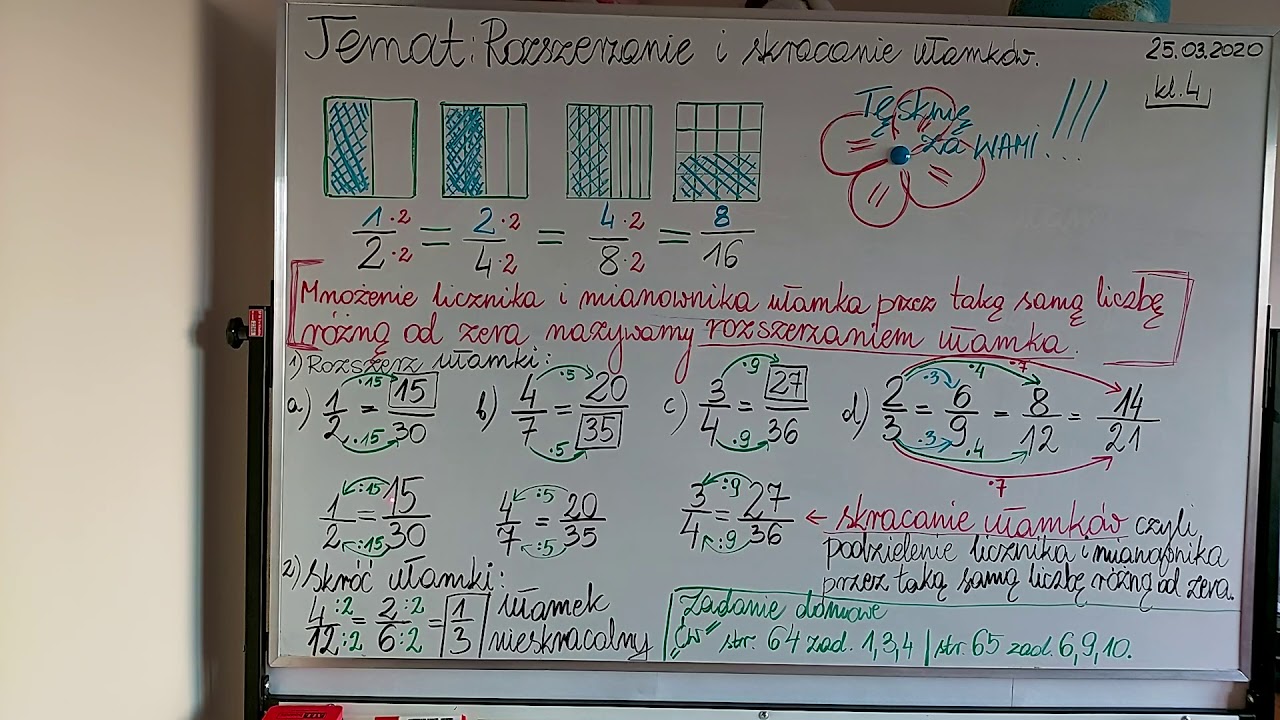 Temat: Rozszerzanie i skracanie ułamków.
25.03.2020
kl. 4
Tęsknię
za WAMI...!!!
1·2/2·2 = 2·2/4·2 = 4·2/8·2 = 8/16
Mnożenie licznika i mianownika ułamka przez taką samą liczbę
różną od zera nazywamy rozszerzaniem ułamka.
1) Rozszerz ułamki:
a) 1/2 = 15/30 ·15 ·15
b) 4/7 = 20/35 ·5 ·5
c) 3/4 = 27/36 ·9 ·9
d) 2/3 = 6/9 = 8/12 = 14/21 ·3 ·4 ·7 ·3 ·4 ·7
1/2 = 15/30 :15 :15
4/7 = 20/35 :5 :5
3/4 = 27/36 :9 :9
← skracanie ułamków czyli
podzielenie licznika i mianownika
przez taką samą liczbę różną od zera.
2) Skróć ułamki:
4:2/12:2 = 2:2/6:2 = 1/3
ułamek
nieskracalny
Zadanie domowe
"ćw" str. 64 zad. 1,3,4 | str. 65 zad. 6,9,10.